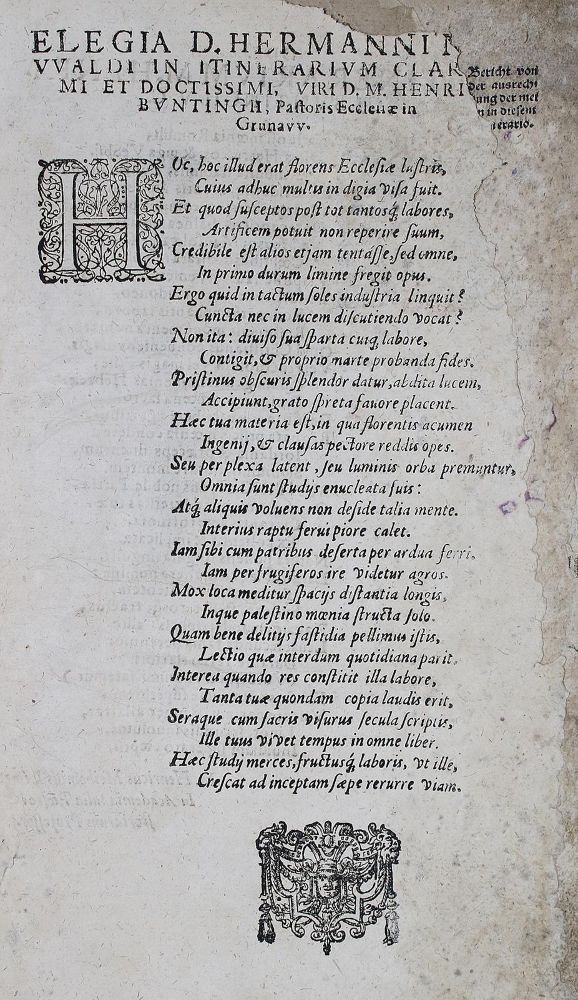 ELEGIA D. HERMANNI
VVALDI IN ITINERARIVM CLAR
MI ET DOCTISSIMI, VIRI D. M. HENRI
BVNTINGII, Pastoris Ecclesiæ in
Grunavv.
Bericht von
der ausrechi
ung der mei
n in diesem
erario.
HUc, hoc illud erat florens Ecclesiæ lustris,
Cuius adhuc multis in digia visa fuit.
Et quod susceptos post tot tantosq́; labores,
Artificem potuit non reperire suum,
Credibile est alios etjam tentásse, sed omne,
In primo durum limine fregit opus.
Ergo quid in tactum soles industria linquit?
Cuncta nec in lucem discutiendo vocat?
Non ita: diuiso sua sparta cuiq́; labore,
Contigit, & proprio marte probanda fides.
Pristinus obscuris splendor datur, abdita lucem,
Accipiunt, grato spreta fauore placent.
Hæc tua materia est, in qua florentis acumen
Ingenij, & clausas pectore reddis opes.
Seu per plexa latent, seu luminis orba premuntur,
Omnia sunt studijs enucleata suis:
Atq́; aliquis voluens non deside talia mente.
Interius raptu ferui piore calet.
Iam sibi cum patribus deserta per ardua ferri,
Iam per frugiferos ire videtur agros.
Mox loca meditur spacijs distantia longis,
Inque palestino mœnia structa solo.
Quam bene delitijs fastidia pellimus istis,
Lectio quæ interdum quotidiana parit.
Interea quando res constitit illa labore,
Tanta tuæ quondam copia laudis erit,
Seraque cum sacris visurus secula scriptis,
Ille tuus vivet tempus in omne liber.
Hæc studij merces, fructusq́; laboris, vt ille,
Crescat ad inceptam sæpe rerurre viam.